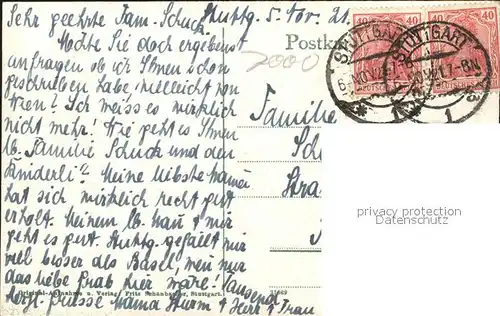 Sehr geehrte Fam. Schuck. Stuttg. 5. Nov. 21.
Möchte Sie doch ergebenst
anfragen ob ich Ihnen schon
geschrieben habe, vielleicht von
hier! Ich weiss es wirklich
nicht mehr! Wie geht es Ihnen
lb. Familie Schuck und den
Kinderli? Meine liebste Mama
hat sich wirklich recht gut
erholt. Meinem lb. Mann & mir
geht es gut. Stuttg. gefällt mir
viel besser als Basel, wenn nur
das liebe Grab hier wäre! Tausend
herzl. Grüsse Mama Sturm & Herr & Frau
Postka
2000
40 40 40
STUTTGART STUTTGART
7-8N.
1 1
Familie
Sch
Stra
privacy protection
Datenschutz
Original-Aufnahme u. Verlag Fritz Schönbester, Stuttgart.